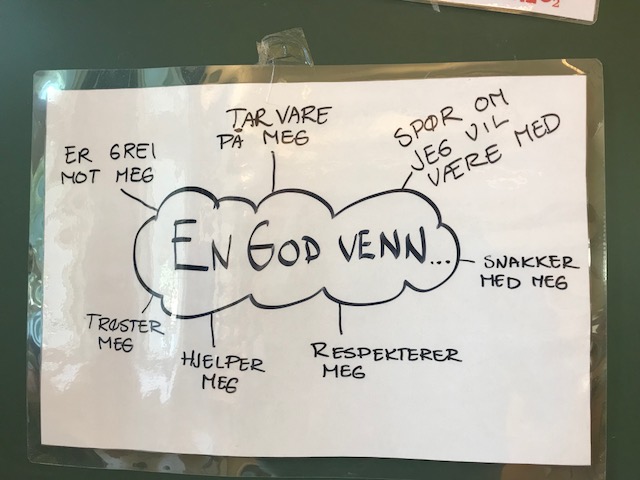 TAR VARE
PÅ MEG
SPØR OM
JEG VIL
VÆRE MED
ER GREI
MOT MEG
EN GOD VENN...
SNAKKER
MED MEG
TRØSTER
MEG
HJELPER
MEG
RESPEKTERER
MEG